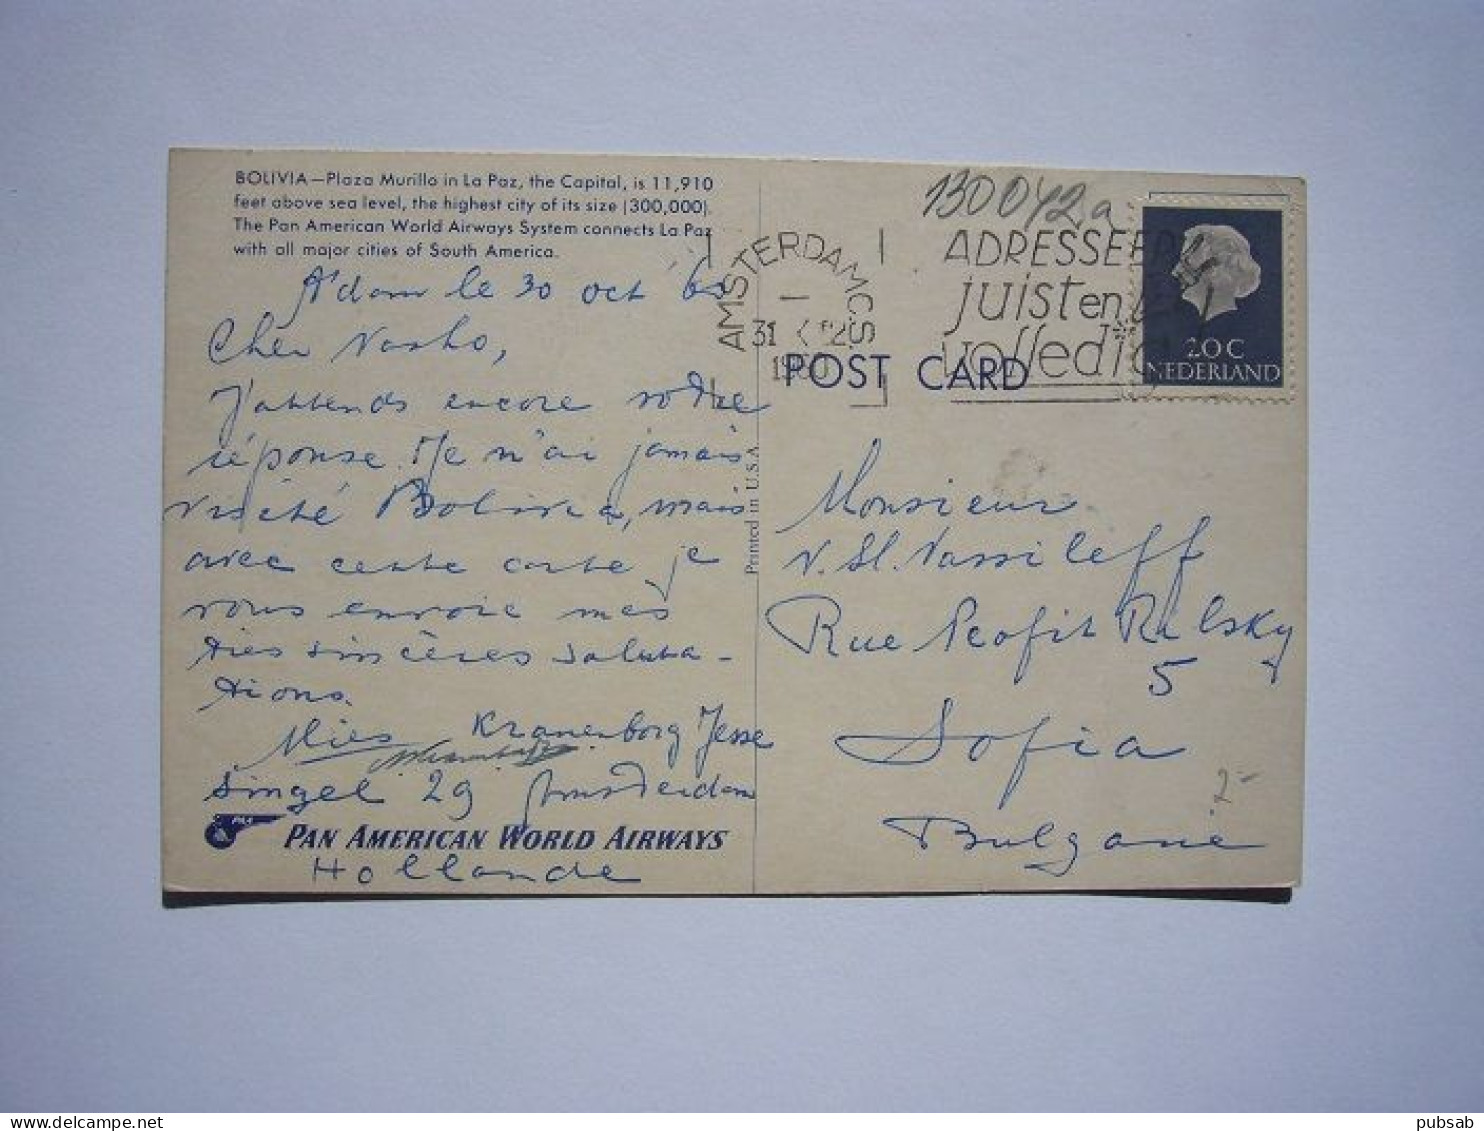 BOLIVIA—Plaza Murillo in La Paz, the Capital, is 11,910
feet above sea level, the highest city of its size (300,000).
The Pan American World Airways System connects La Paz
with all major cities of South America.
A'dam le 30 oct '60
Cher Vasko,
J'attends encore votre
réponse. Je n'ai jamais
visité Bolivia, mais
avec cette carte je
vous envoie mes
très sincères saluta-
tions.
Mies Kranenborg Jesse
Singel 29 Amsterdam
PAA
PAN AMERICAN WORLD AIRWAYS
Hollande
Printed in U.S.A.
130042a
AMSTERDAM C.S.
31 X 12
1960
ADRESSEER
juist en
volledig
20C
NEDERLAND
POST CARD
Monsieur
V. Sl. Vassileff
Rue Teofit Rilsky
5
Sofia
Bulgarie
2-
pubsab